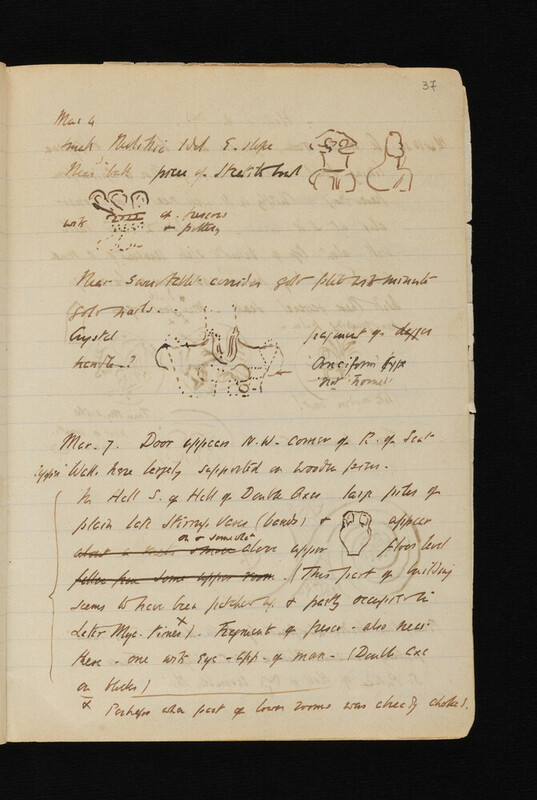 37
Mar 4
Neolithic Idol E. slope
Near bath piece of Steatite bowl
with of rosettes
& pottery
Near same Tablet corridor gold plate with minute
gold nails.
Crystal fragment of dagger
handle? Cruciform type
not horned
Mar. 7. Door appears N.W. corner of R. of Seat
upper Walls here largely supported on wooden piers.
In Hall S. of Hall of Double Axes large piles of
plain late Stirrup Vases (bands) & appear
on & somewhat
about above upper floor level
fallen from some upper room. (This part of building
seems to have been patched up & partly occupied in
Later Myc. times x). Fragment of fresco - also near
there - one with eye - app. of man - (Double Axe
on blocks)
x Perhaps when part of lower rooms was already choked.